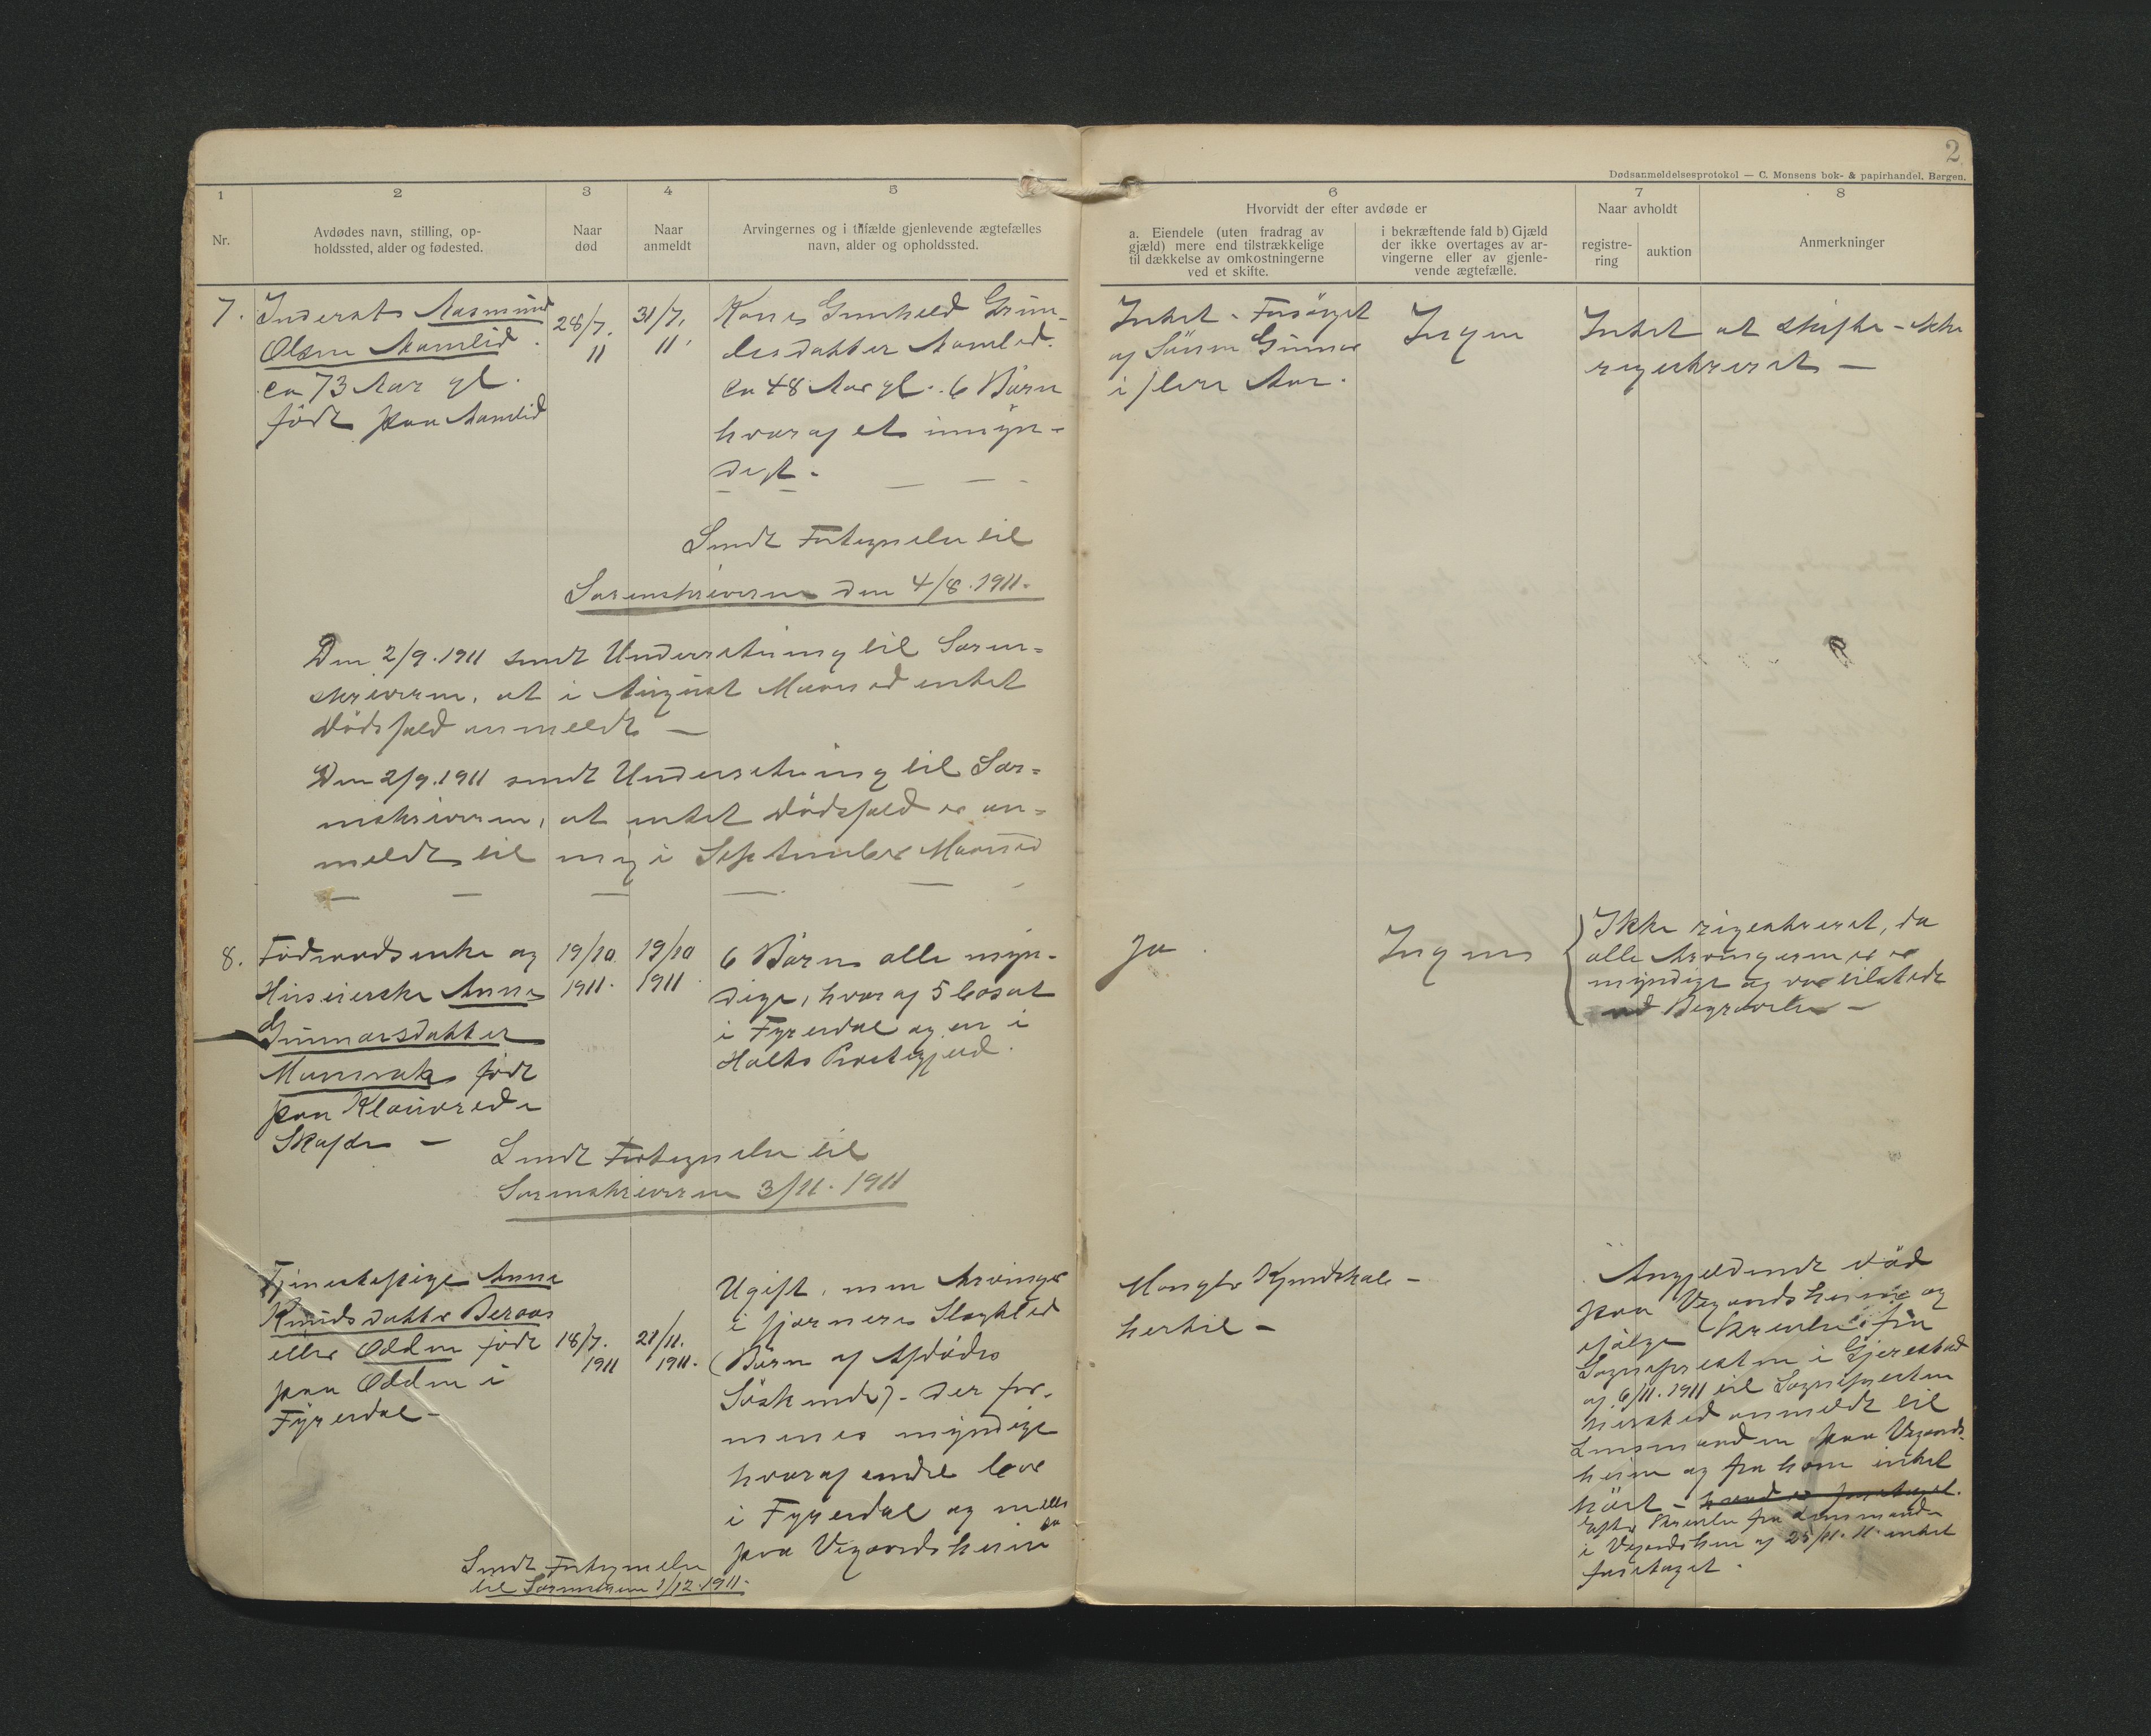 2
Dødsanmeldelsesprotokol — C. Monsens bok- & papirhandel, Bergen.
1
2
3
4
5
6
7
8
Nr.
Avdødes navn, stilling, op-
holdssted, alder og fødested.
Naar
død
Naar
anmeldt
Arvingernes og i tilfælde gjenlevende ægtefælles
navn, alder og opholdssted.
Hvorvidt der efter avdøde er
a. Eiendele (uten fradrag av
gjæld) mere end tilstrækkelige
til dækkelse av omkostningerne
ved et skifte.
i bekræftende fald b) Gjæld
der ikke overtages av ar-
vingerne eller av gjenle-
vende ægtefælle.
Naar avholdt
registre-
ring
auktion
Anmerkninger
7. Inderst Aasmund
Olsen Aamlid.
ca 73 Aar gl.
født paa Aamlid
28/7.
11
31/7.
11.
Kone Gunhild
datter Aamlid.
ca 48 Aar gl. 6 Børn
hvoraf et umyn-
digt.
Intet - Forsørget
af Sønnen Gunnar
i flere Aar.
Ingen
Intet at skifte - ikke
registreret —
Sendt Fortegnelse til
Sorenskriveren den 4/8.1911.
Den 2/9.1911 sendt Underretning til Soren=
skriveren, at i August Maaned intet
Dødsfald anmeldt —
Den 2/9.1911 sendt Underretning til Sor=
nskriveren, at intet Dødsfald er an=
meldt til mig i September Maaned
8. Føderaadsenke og
Huseierske Anne
Gunnarsdatter
født
paa
Skafsaa —
19/10.
1911.
19/10
1911
6 Børn alle myn-
dige, hvoraf 5 bosat
i Fyresdal og en i
Holts Prestegjeld.
Ja.
Ingen
Ikke registreret, da
alle Arvingerne er
myndige og var tilstede
ved Begravelsen —
Sendt Fortegnelse til
Sorenskriveren 3/11. 1911
Tjenestepige Anne
Knudsdatter Beraas
eller Odden født
paa Odden i
Fyresdal -
18/7.
1911
21/11.
1911.
Ugift, men Arvinger
i fjernere Slegtled
(Børn af Afdødes
Søskende) - der for-
menes myndige
hvoraf endel bor
i Fyresdal og
paa Vegaardsheien
Mangler Kjendskab
hertil -
Angjeldende død
paa Vegaardsheien og
ifølge Skrivelse fra
Sognepresten i Gjerestad
af 6/11.1911 til Sognepresten
hersted anmeldt til
Lensmanden paa Vegaards-
heien og fra ham intet
hørt -
Efter Skrivelse fra Lensmanden
i Vegaardsheien af 25/11.11 intet
foretaget.
Sendt Fortegnelse
til Sorenskriveren 1/12.1911.